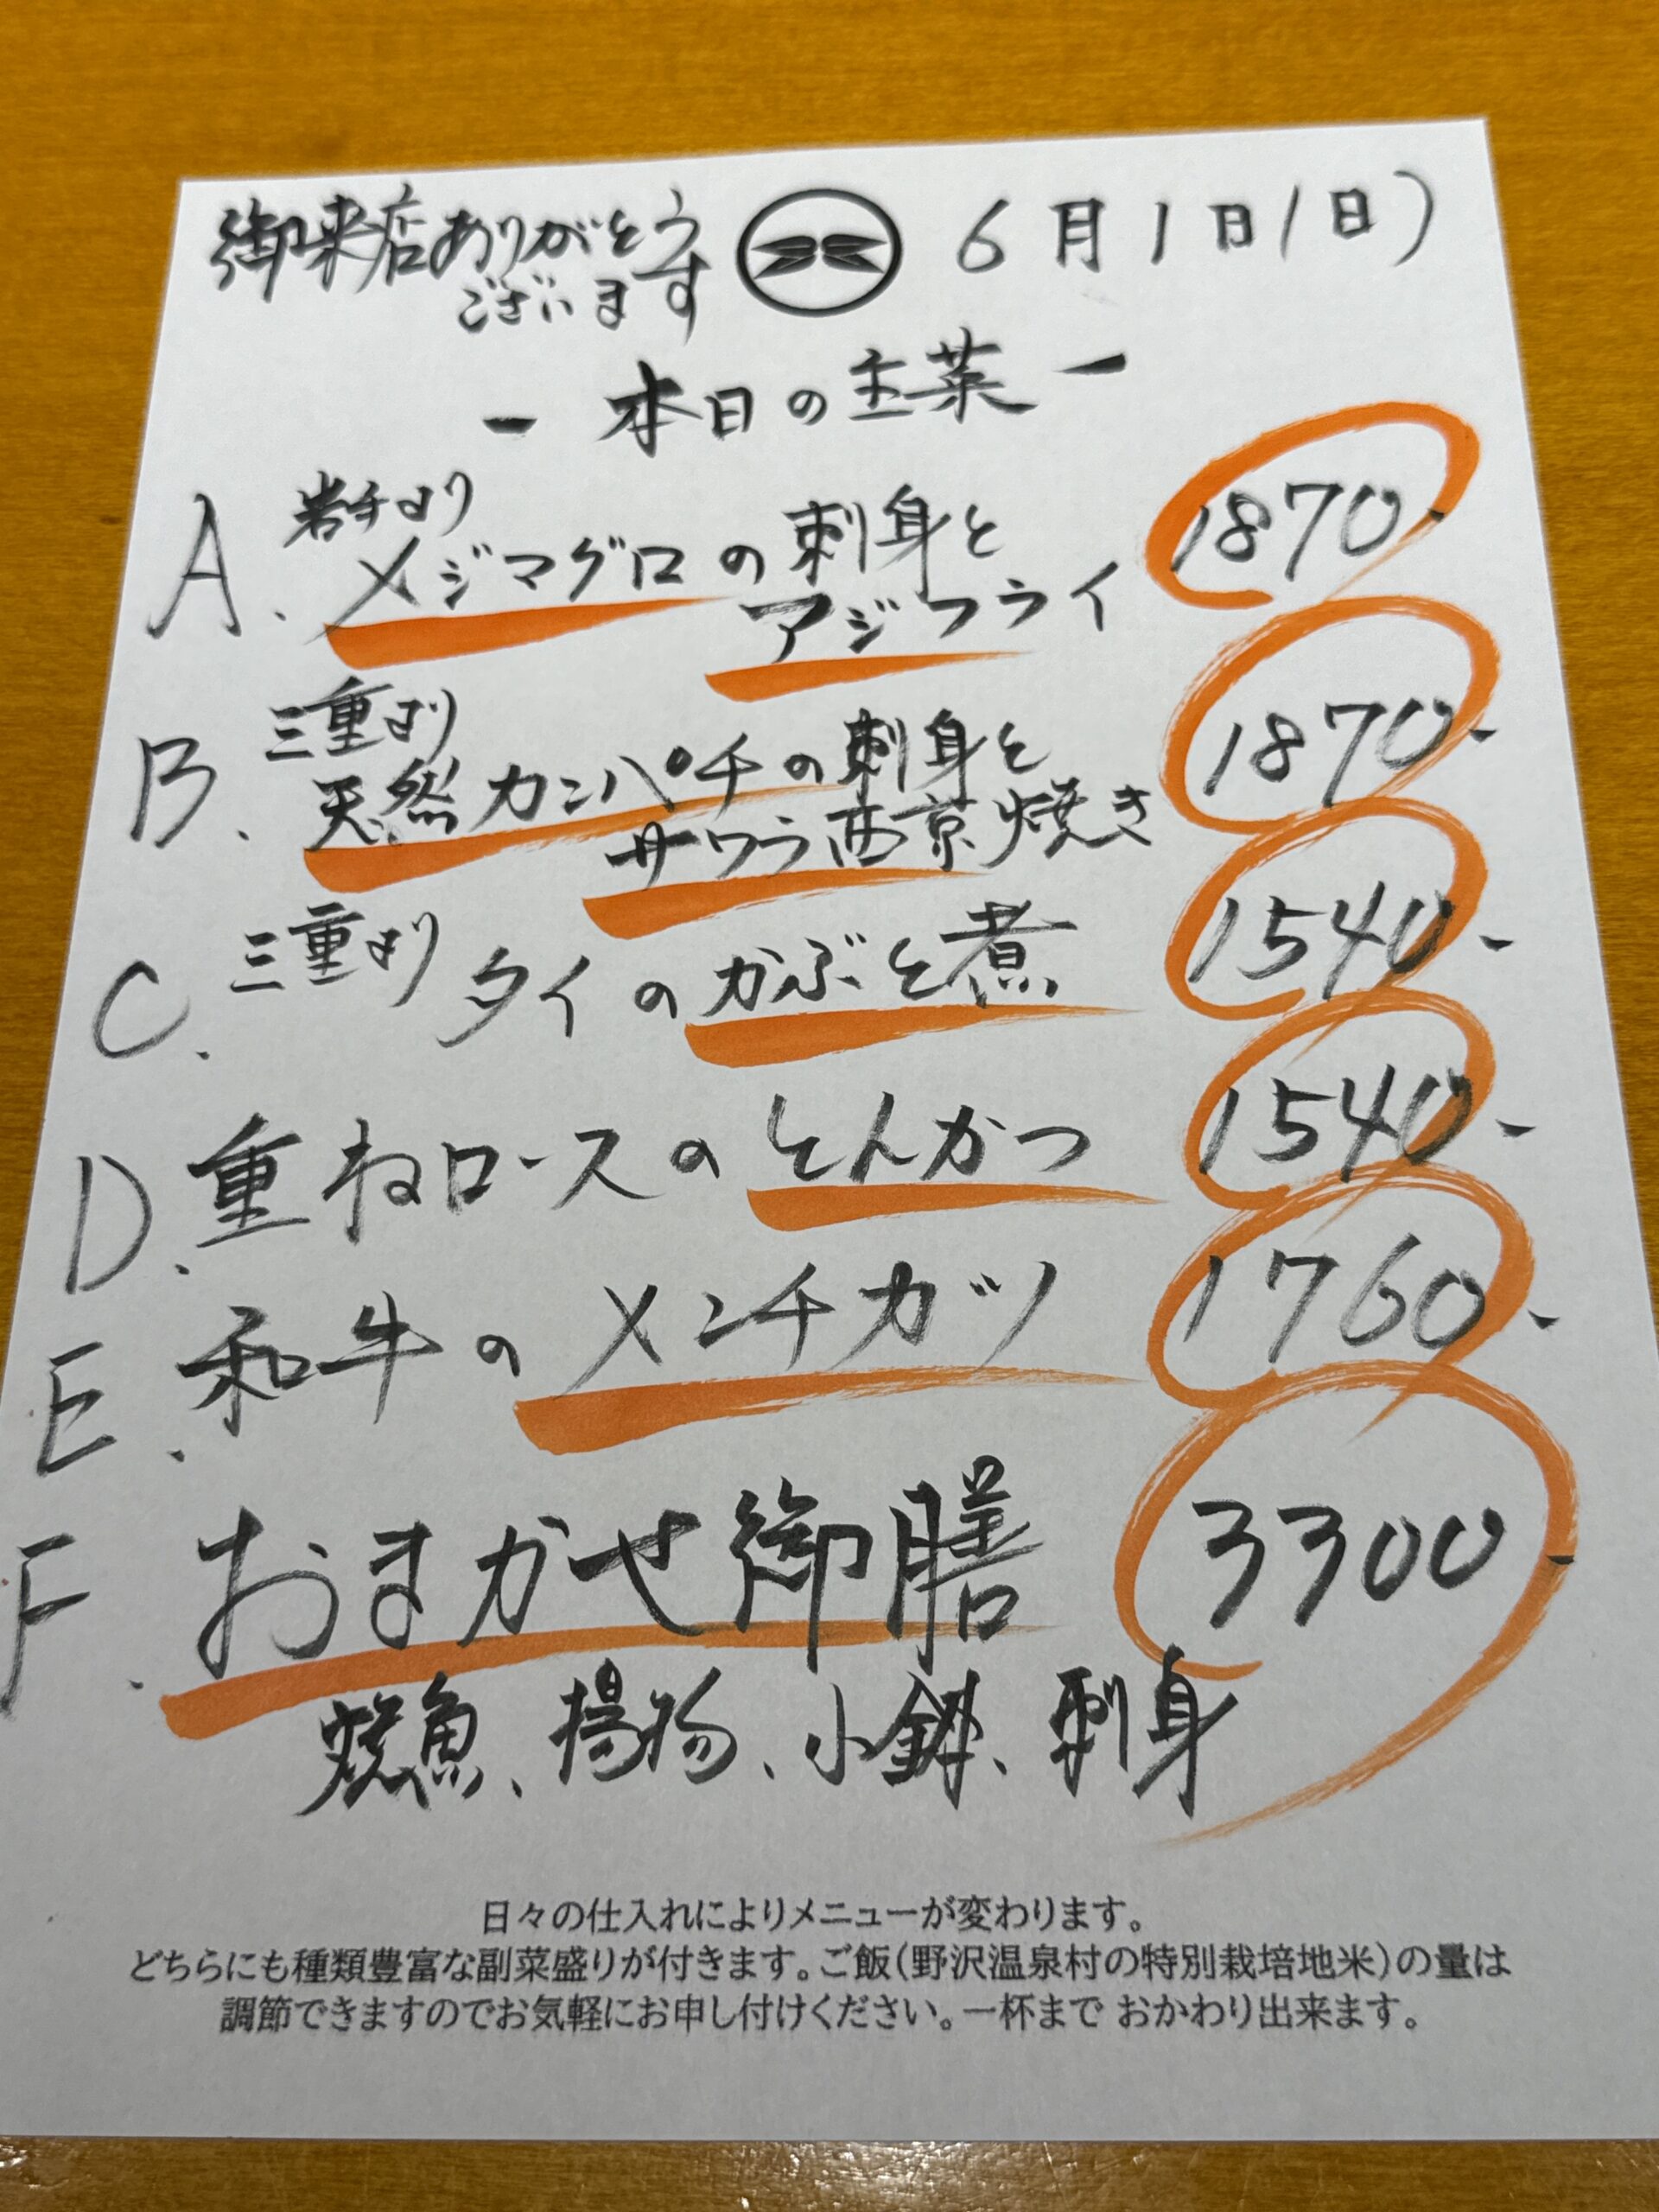 御来店ありがとう
ございます
6月1日(日)
- 本日の主菜 -
A. 岩手より
メジマグロの刺身と
アジフライ
1870-
B. 三重より
天然カンパチの刺身と
サワラ西京焼き
1870-
C. 三重より タイのかぶと煮 1540-
D. 重ねロースのとんかつ 1540-
E. 和牛のメンチカツ 1760-
F. おまかせ御膳 3300-
焼魚、揚物、小鉢、刺身
日々の仕入れによりメニューが変わります。
どちらにも種類豊富な副菜盛りが付きます。ご飯(野沢温泉村の特別栽培地米)の量は
調節できますのでお気軽にお申し付けください。一杯まで おかわり出来ます。